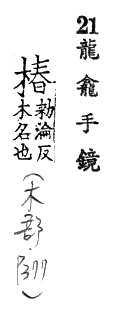 21龍龕手鏡
椿
勑淪反
木名也
(木部·P377)